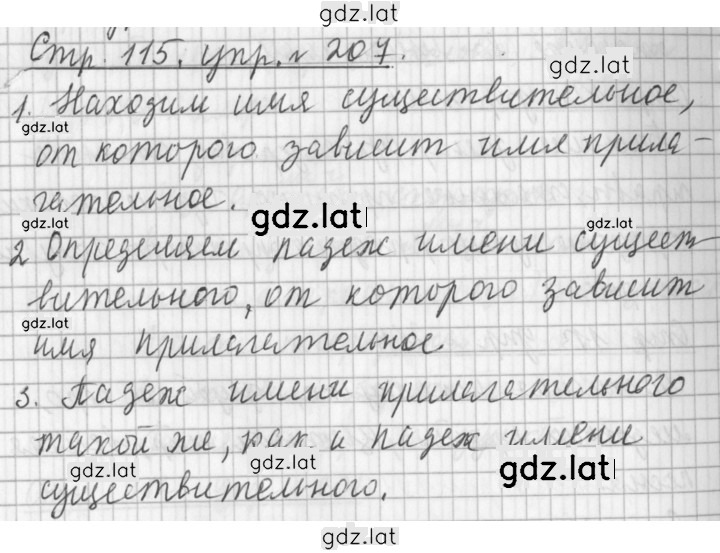 gdz.lat
Стр. 115, упр. № 207.
gdz.lat
1. Находим имя существительное,
gdz.lat
от которого зависит имя прила-
гательное.
gdz.lat
gdz.lat
gdz.lat
2 Определяем падеж имени сущест
вительного, от которого зависит
gdz.lat
имя прилагательное
3. Падеж имени прилагательного
такой же, как и падеж имени
gdz.lat
gdz.lat
gdz.lat
существительного.
gdz.lat